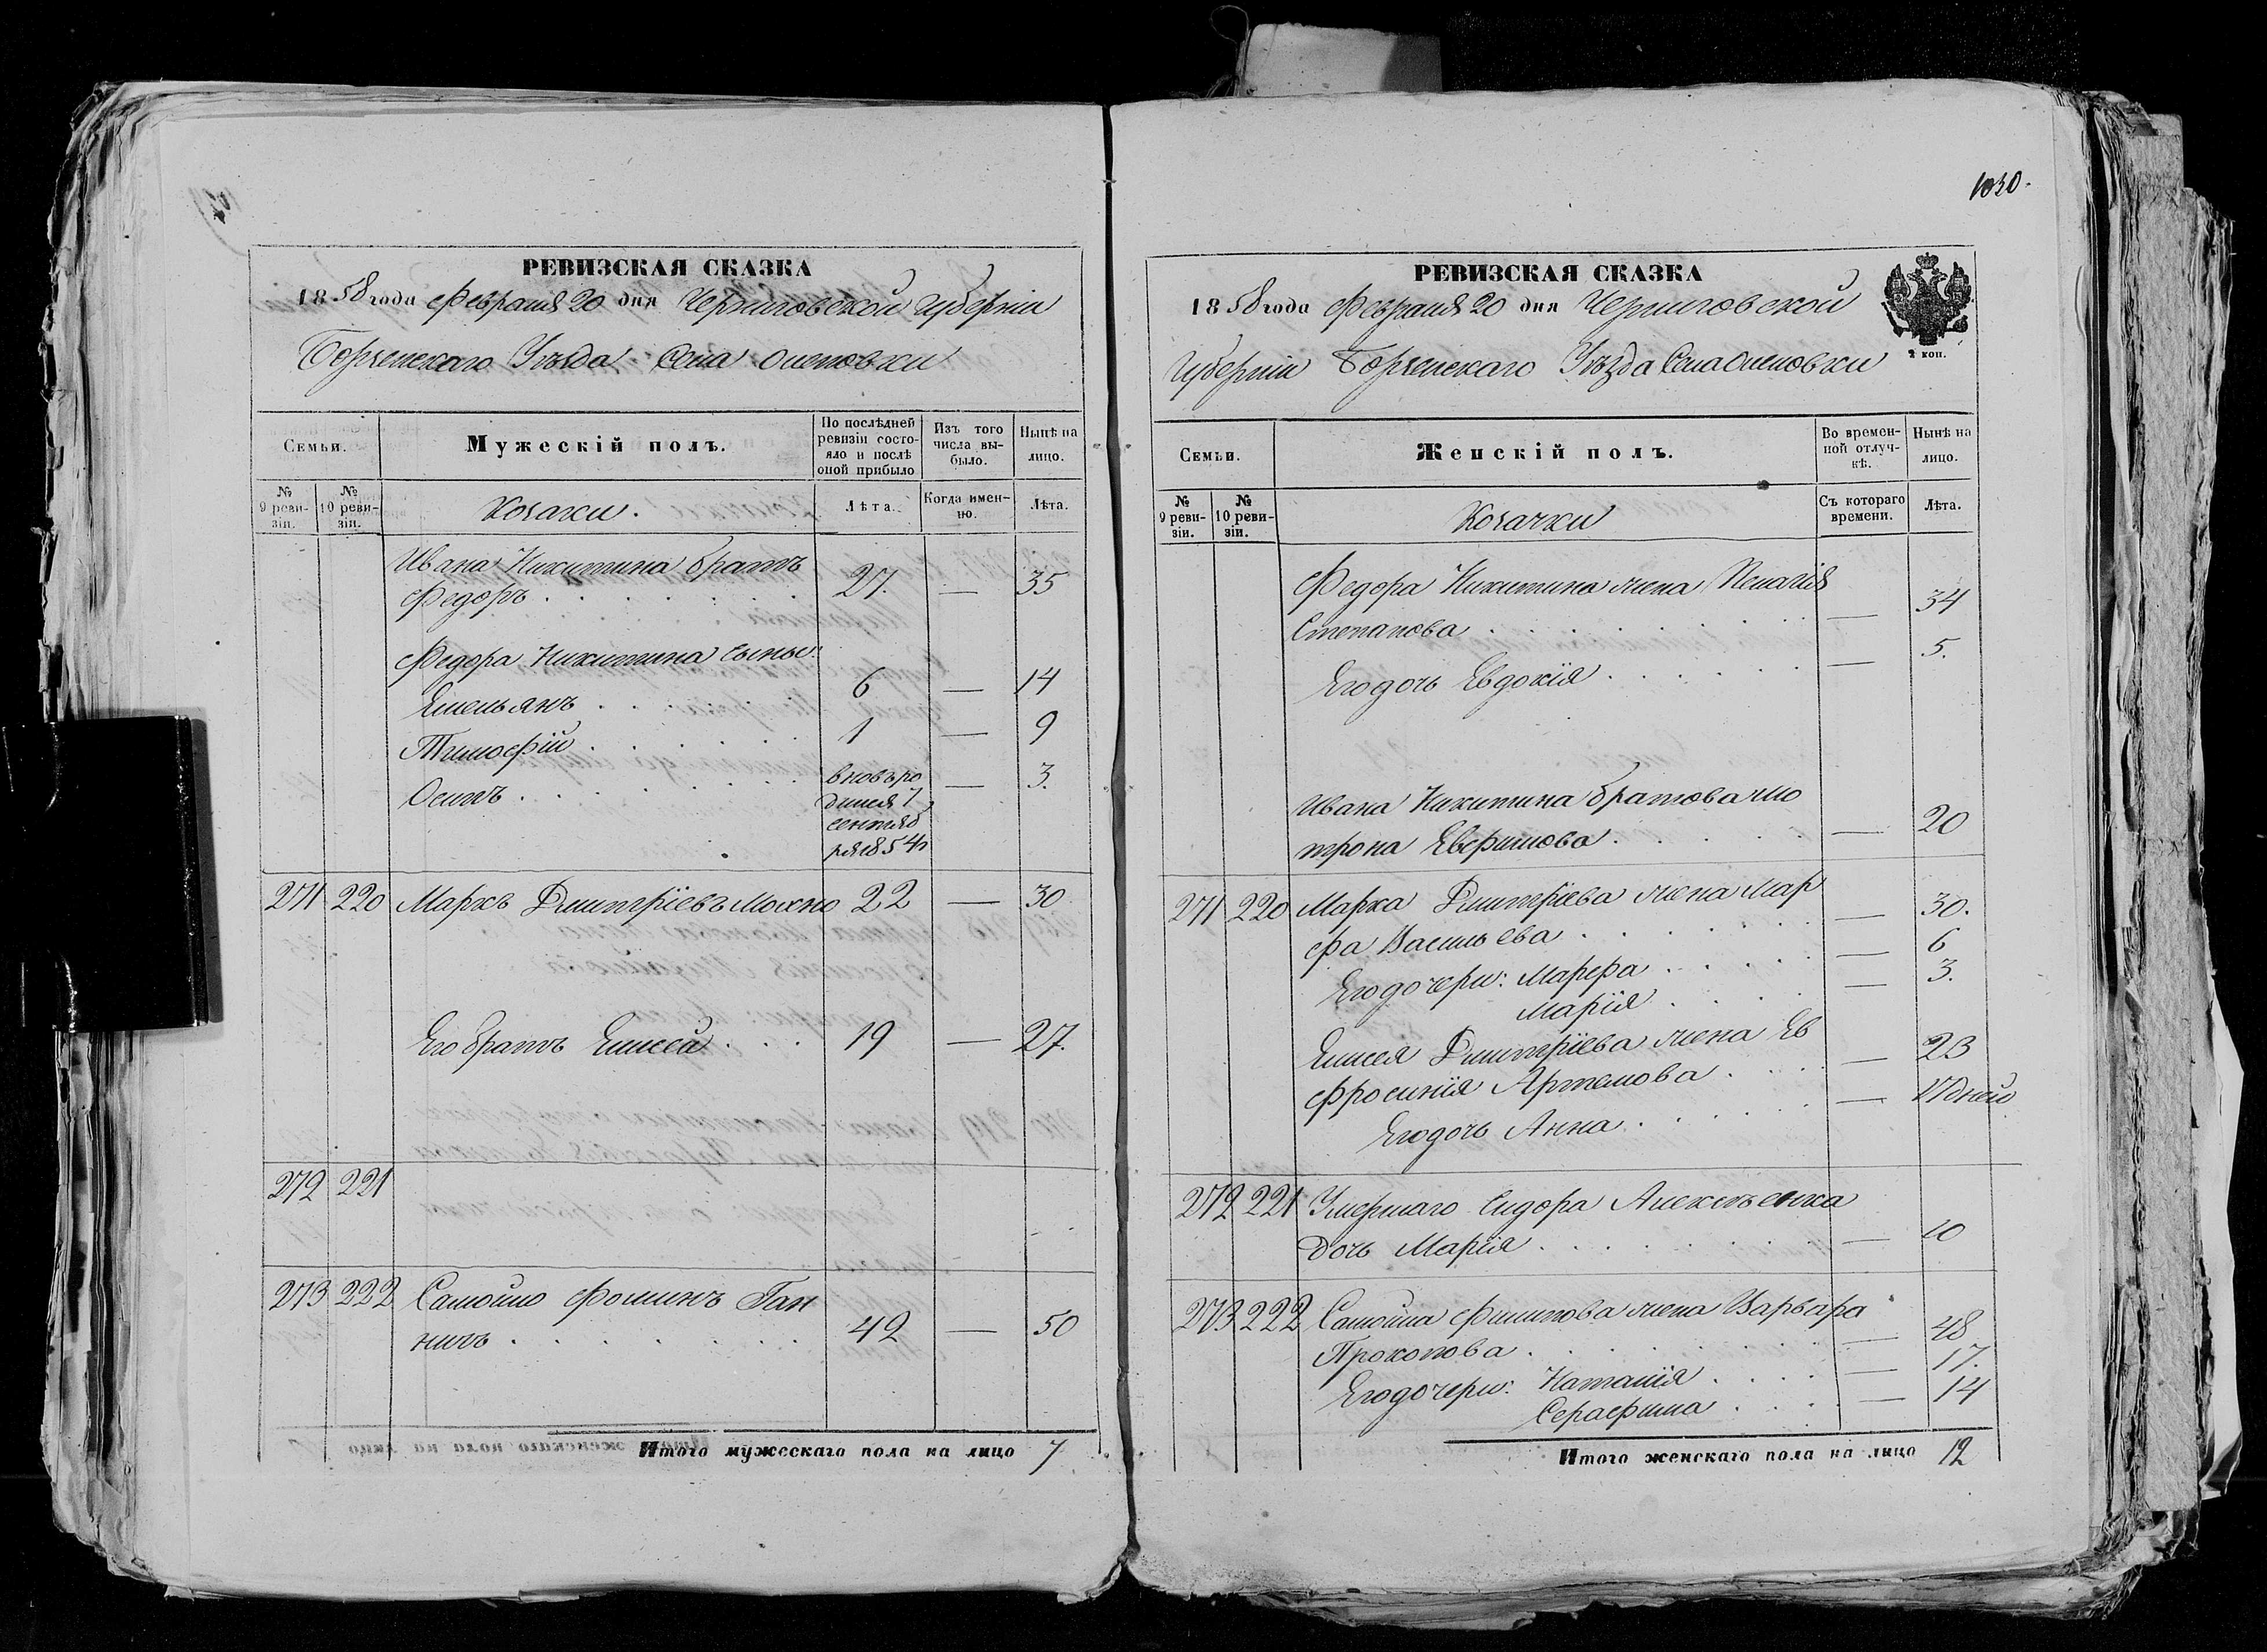 РЕВИЗСКАЯ СКАЗКА
1858 года Февраля 20 дня Черниговской Губерніи
Борзенскаго Уѣзда Села
Семьи.
Мужескій полъ.
По послѣдней ревизіи состояло и послѣ оной прибыло
Изъ того числа выбыло.
Нынѣ на лицо.
№ 9 ревизіи.
№ 10 ревизіи.
Козаки.
Лѣта.
Когда именно.
Лѣта.
Ивана Никитина братъ
Федоръ . . . . . . 27. — 35
Федора Никитина сыны:
Емельянъ . . . . . 6 — 14
Тимофій . . . . . 1 — 9
Осипъ . . . . . . вновь ро — 3.
дился 7
сентяб
ря 1854
271 220 Марко Дмитріевъ Мохно 22 — 30
Его братъ Елисей . . . 19 — 27.
272 221
273 222 Самойло Фоминъ Ган
ничъ . . . . . . . 42 — 50
Итого мужескаго пола на лицо 7
1030.
РЕВИЗСКАЯ СКАЗКА
1858 года Февраля 20 дня Черниговской
2 коп.
Губерніи Борзенскаго Уѣзда Села
Семьи.
Женскій полъ.
Во временной отлучкѣ.
Нынѣ на лицо.
№ 9 ревизіи.
№ 10 ревизіи.
Козачки
Съ котораго времени.
Лѣта.
Федора Никитина жена Пелагія
Степанова . . . . . . . — 34
Его дочь Евдокія . . . . . — 5.
Ивана Никитина братова
. . . . . — 20
271 220 Марка Дмитріева жена Мар
фа Васильева . . . . . — 30.
Его дочери: Марфа . . . . — 6
Марія . . . . — 3.
Елисея Дмитріева жена Ев
фросинія Артемова . . . — 23
Его дочь Анна . . . . . — 17 дней
272 221 Умершаго Сидора Алексѣенка
дочь Марія . . . . . . . — 10
273 222 Самойла Филипова жена Варвара
Прокопова . . . . . . . — 48
Его дочери: Наталія . . . . — 17.
Серафима . . . . — 14
Итого женскаго пола на лицо 12